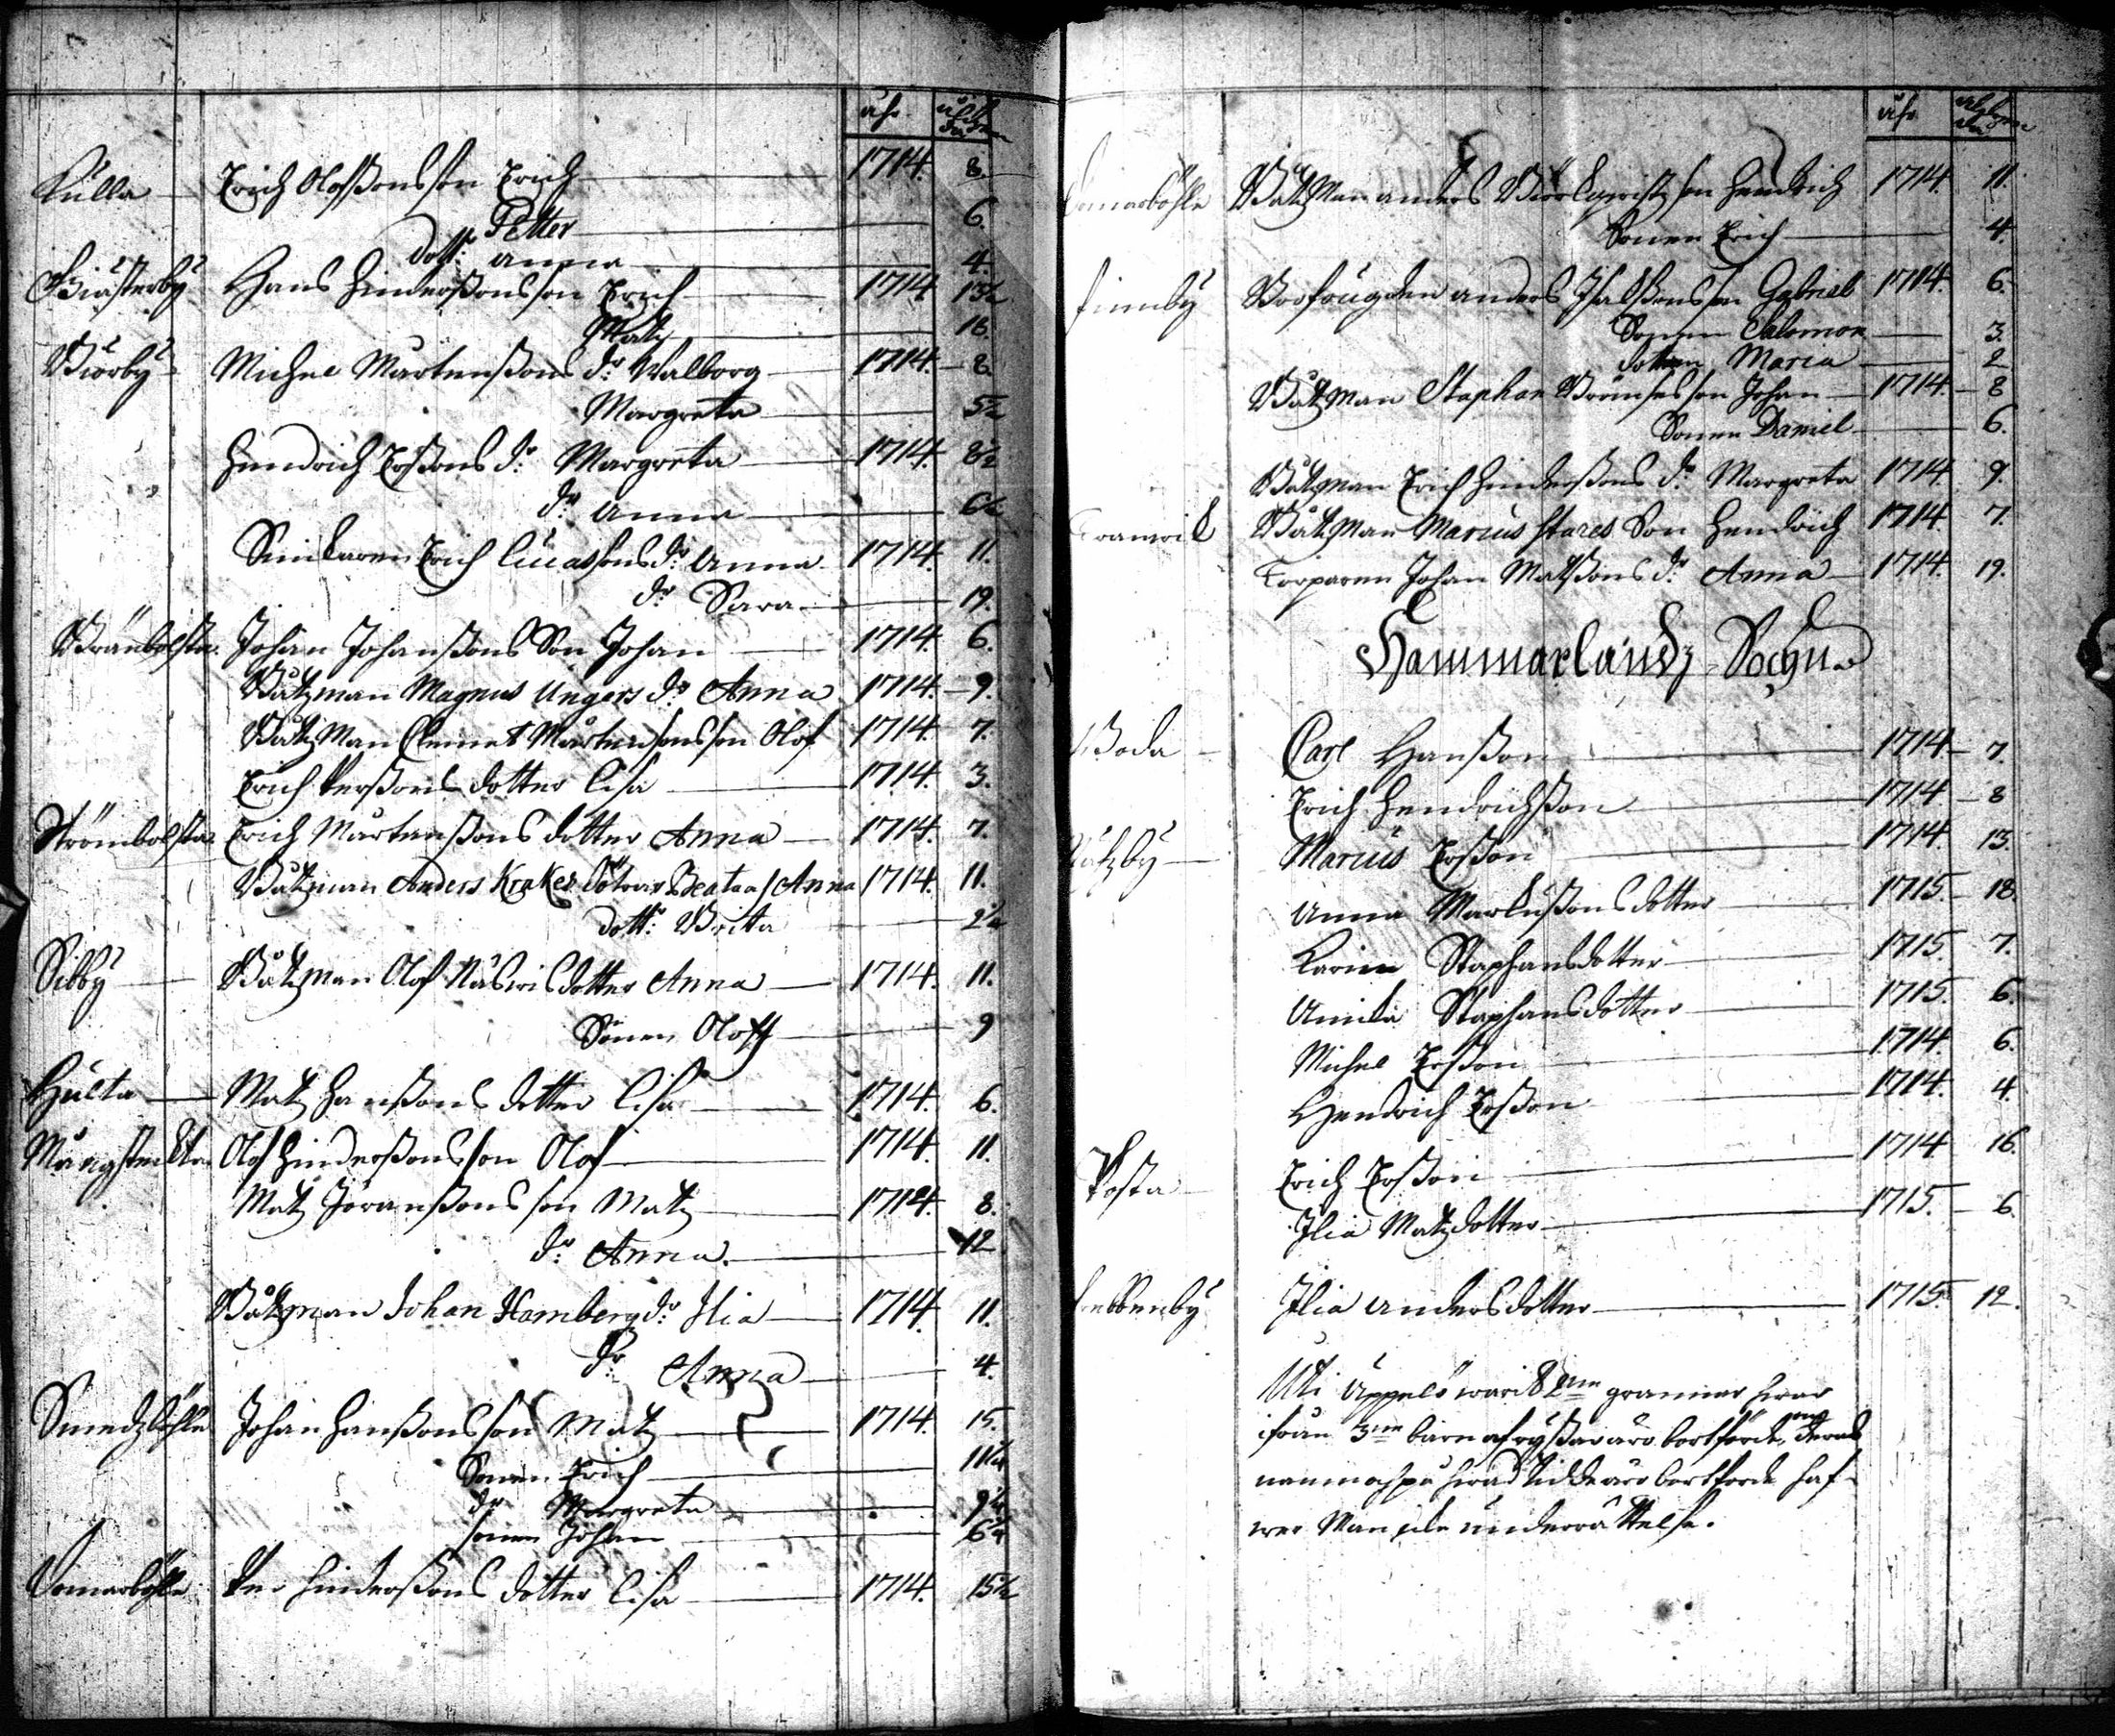 åhr
Kulla Erich Olofssons son Erich 1714. 8.
Petter 6.
dott: Anna 4.
Giästerby Hans Hinderssons son Erich 1714 13½
Matz 16.
Biörby Michel Mårtenssons dr: Walborg 1714. 8
Margreta 5½
Hendrich Erssons dr: Margreta 1714. 8½
dr: Anna 6½
Erich Lucassons dr: Anna 1714. 11.
dr: Sara 19.
Brännbolsta Johan Johanssons Son Johan 1714. 6.
Båtzman Magnus Ungers dr: Anna 1714. 9.
Båtzman Clemet Mårtensons son Olof 1714. 7.
Erich Perssons dotter Lisa 1714. 3.
Strömbolsta Erich Mårtenssons dotter Anna 1714. 7.
Båtzman Anders Krakes dötrar Beata / Anna 1714. 11.
dott: Brita
Sibby Båtzman Olof Näswis dotter Anna 1714. 11.
Sonen Oloff 9
Hulta Matz Hanssons dotter Lisa 1714. 6.
Mångstenckta Olof Hinderssons son Olof 1714. 11.
Matz Jöranssons son Matz 1714. 8.
dr: Anna. 12
Båtzman Johan Hamberg dr: Ilia 1714. 11.
dr: Anna 4.
Smedzböhle Johan Hanssons son Matz 1714. 15.
Sonen Erich
dr Margreta
sonen Johan
Domarböhle Per Hinderssons dotter Lisa 1714. 15½
åhr
Domarböhle Båtzman Anders son Hendrich 1714. 11.
Sonen Erich 4.
Finnby Anders son Gabriel 1714. 6.
Sonen Salomon 3.
dotteren Maria 2
Båtzman Staphan son Johan 1714. 8
Sonen Daniel 6.
Båtzman Erich Hinderssons dr: Margreta 1714. 9.
Tranwik Båtzman Marcus Stares Son Hendrich 1714. 7.
Torparen Johan Matzssons dr: Anna 1714. 19.
Hammarlandz Sochn
Boda Carl Hansson 1714. 7.
Erich Hendrichsson 1714 8
Näfzby Marcus Ersson 1714. 13.
Anna Markussons dotter 1715. 18.
Karin Staphansdotter 1715. 7.
Annika Staphansdotter 1715. 6.
Michel Ersson 1714. 6.
Hendrich Ersson 1714. 4.
Posta Erich Ersson 1714 16.
Ilia Matzdotter 1715. 6.
Frebbenby Ilia Andersdotter 1715. 12.
Uti Äppelö warit 2ne grannar hwar
ifrån 3ne barn af ryssar äro bortförde, men deras
namn och på hwad tid de äro bortförde haf-
wer Man icke underrättelse.